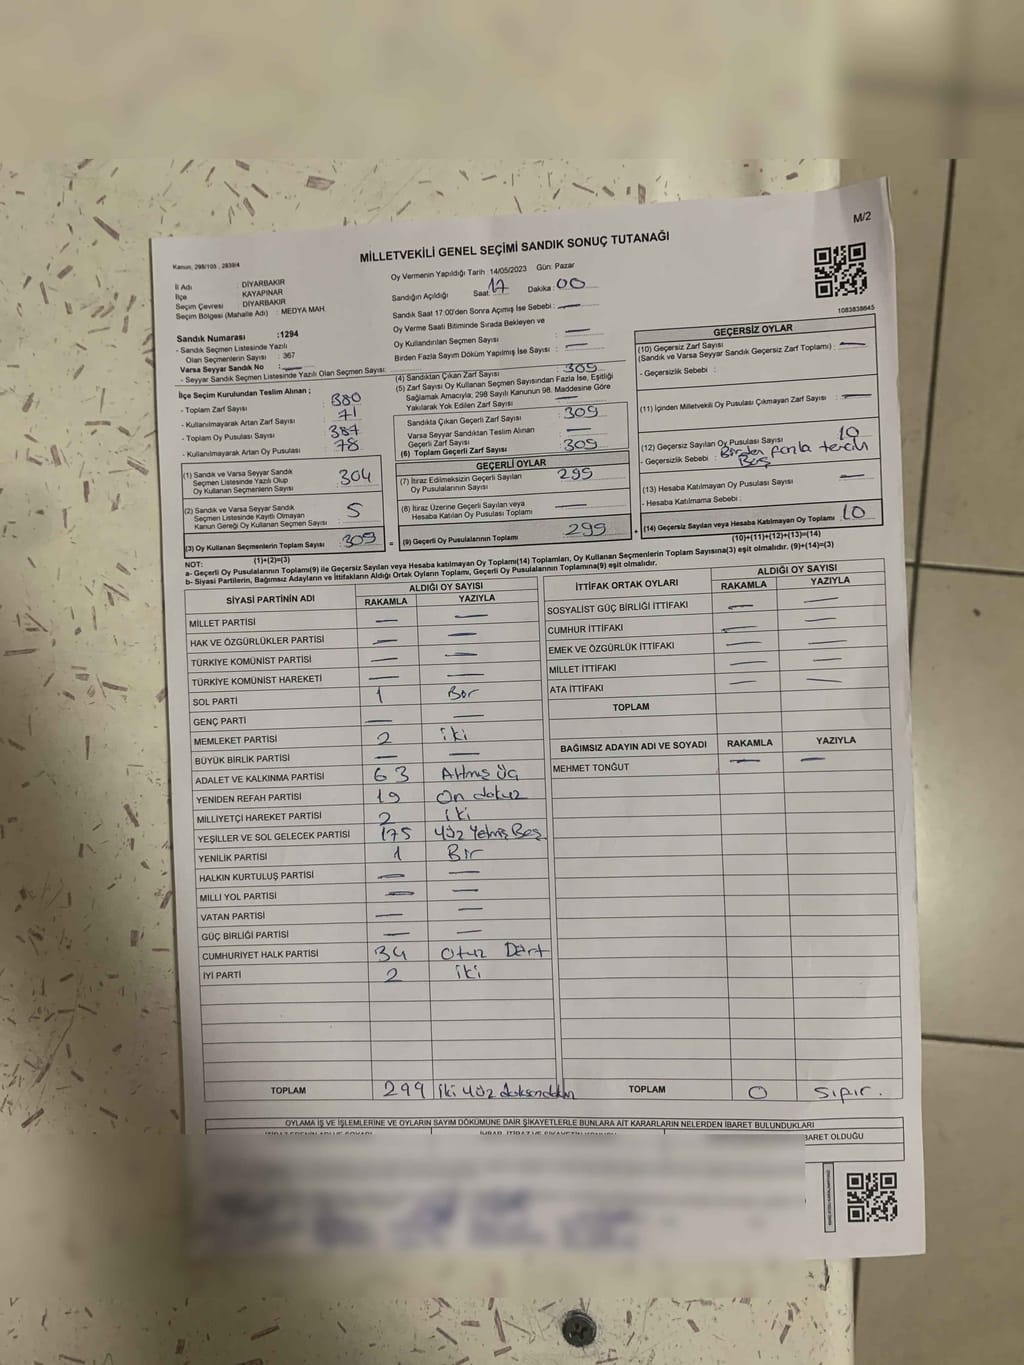 M/2
MİLLETVEKİLİ GENEL SEÇİMİ SANDIK SONUÇ TUTANAĞI
Kanun; 298/105 , 2839/4
İl Adı : DİYARBAKIR
İlçe : KAYAPINAR
Seçim Çevresi : DİYARBAKIR
Seçim Bölgesi (Mahalle Adı) : MEDYA MAH.
Sandık Numarası :1294
- Sandık Seçmen Listesinde Yazılı
Olan Seçmenlerin Sayısı : 367
Varsa Seyyar Sandık No : —
- Seyyar Sandık Seçmen Listesinde Yazılı Olan Seçmen Sayısı:
Oy Vermenin Yapıldığı Tarih :14/05/2023 Gün: Pazar
Sandığın Açıldığı Saat: 17 Dakika: 00
Sandık Saat 17:00'den Sonra Açımış İse Sebebi: —
Oy Verme Saati Bitiminde Sırada Bekleyen ve
Oy Kullandırılan Seçmen Sayısı : —
Birden Fazla Sayım Döküm Yapılmış İse Sayısı : —
1083838645
İlçe Seçim Kurulundan Teslim Alınan ;
- Toplam Zarf Sayısı : 380
- Kullanılmayarak Artan Zarf Sayısı : 71
- Toplam Oy Pusulası Sayısı : 387
- Kullanılmayarak Artan Oy Pusulası : 78
(1) Sandık ve Varsa Seyyar Sandık
Seçmen Listesinde Yazılı Olup
Oy Kullanan Seçmenlerin Sayısı : 304
(2) Sandık ve Varsa Seyyar Sandık
Seçmen Listesinde Kayıtlı Olmayan
Kanun Gereği Oy Kullanan Seçmen Sayısı : 5
(3) Oy Kullanan Seçmenlerin Toplam Sayısı : 309
(1)+(2)=(3)
(4) Sandıktan Çıkan Zarf Sayısı : 309
(5) Zarf Sayısı Oy Kullanan Seçmen Sayısından Fazla İse, Eşitliği
Sağlamak Amacıyla; 298 Sayılı Kanunun 98. Maddesine Göre
Yakılarak Yok Edilen Zarf Sayısı : —
Sandıkta Çıkan Geçerli Zarf Sayısı : 309
Varsa Seyyar Sandıktan Teslim Alınan
Geçerli Zarf Sayısı : —
(6) Toplam Geçerli Zarf Sayısı : 309
GEÇERLİ OYLAR
(7) İtiraz Edilmeksizin Geçerli Sayılan
Oy Pusulalarının Sayısı : 299
(8) İtiraz Üzerine Geçerli Sayılan veya
Hesaba Katılan Oy Pusulası Toplamı : —
= (9) Geçerli Oy Pusulalarının Toplamı : 299
GEÇERSİZ OYLAR
(10) Geçersiz Zarf Sayısı
(Sandık ve Varsa Seyyar Sandık Geçersiz Zarf Toplamı) : —
- Geçersizlik Sebebi :
(11) İçinden Milletvekili Oy Pusulası Çıkmayan Zarf Sayısı : —
(12) Geçersiz Sayılan Oy Pusulası Sayısı : 10
- Geçersizlik Sebebi : Birden fazla tercih
Boş
(13) Hesaba Katılmayan Oy Pusulası Sayısı : —
- Hesaba Katılmama Sebebi :
+ (14) Geçersiz Sayılan veya Hesaba Katılmayan Oy Toplamı : 10
(10)+(11)+(12)+(13)=(14)
NOT:
a- Geçerli Oy Pusulalarının Toplamı(9) ile Geçersiz Sayılan veya Hesaba katılmayan Oy Toplamı(14) Toplamları, Oy Kullanan Seçmenlerin Toplam Sayısına(3) eşit olmalıdır. (9)+(14)=(3)
b- Siyasi Partilerin, Bağımsız Adayların ve İttifakların Aldığı Ortak Oyların Toplamı, Geçerli Oy Pusulalarının Toplamına(9) eşit olmalıdır.
SİYASİ PARTİNİN ADI ALDIĞI OY SAYISI
RAKAMLA YAZIYLA
MİLLET PARTİSİ — —
HAK VE ÖZGÜRLÜKLER PARTİSİ — —
TÜRKİYE KOMÜNİST PARTİSİ — —
TÜRKİYE KOMÜNİST HAREKETİ — —
SOL PARTİ 1 Bir
GENÇ PARTİ — —
MEMLEKET PARTİSİ 2 iki
BÜYÜK BİRLİK PARTİSİ — —
ADALET VE KALKINMA PARTİSİ 63 Altmış Üç
YENİDEN REFAH PARTİSİ 19 On dokuz
MİLLİYETÇİ HAREKET PARTİSİ 2 iki
YEŞİLLER VE SOL GELECEK PARTİSİ 175 Yüz Yetmiş Beş
YENİLİK PARTİSİ 1 Bir
HALKIN KURTULUŞ PARTİSİ — —
MİLLİ YOL PARTİSİ — —
VATAN PARTİSİ — —
GÜÇ BİRLİĞİ PARTİSİ — —
CUMHURİYET HALK PARTİSİ 34 Otuz Dört
İYİ PARTİ 2 iki
TOPLAM 299 iki yüz doksandokuz
İTTİFAK ORTAK OYLARI ALDIĞI OY SAYISI
RAKAMLA YAZIYLA
SOSYALİST GÜÇ BİRLİĞİ İTTİFAKI — —
CUMHUR İTTİFAKI — —
EMEK VE ÖZGÜRLÜK İTTİFAKI — —
MİLLET İTTİFAKI — —
ATA İTTİFAKI — —
TOPLAM
BAĞIMSIZ ADAYIN ADI VE SOYADI RAKAMLA YAZIYLA
MEHMET TONĞUT — —
TOPLAM 0 Sıfır.
OYLAMA İŞ VE İŞLEMLERİNE VE OYLARIN SAYIM DÖKÜMÜNE DAİR ŞİKAYETLERLE BUNLARA AİT KARARLARIN NELERDEN İBARET BULUNDUKLARI
BARET OLDUĞU